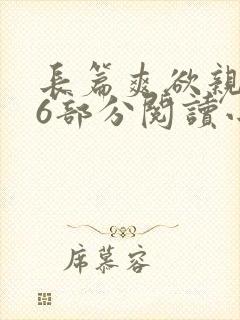 長篇爽欲親
6部分閱讀
席慕容